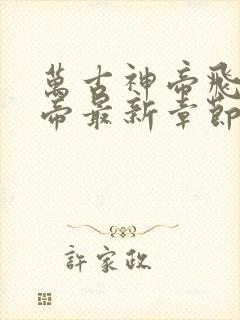 萬古神帝飛
帝最新章節
許家政